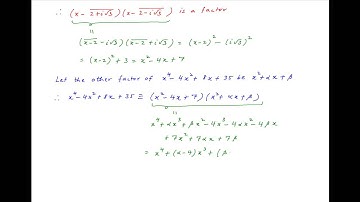 ∴ (x - \overline{2+i√3}) (x - \overline{2-i√3}) is a factor
"
(\overline{x-2} - i√3) (\overline{x-2} + i√3) = (x-2)² - (i√3)²
= (x-2)² + 3 = x² - 4x + 7
Let the other factor of x⁴ - 4x² + 8x + 35 be x² + αx + β
∴ x⁴ - 4x² + 8x + 35 ≡ (x² - 4x + 7) (x² + αx + β)
"
x⁴ + αx³ + βx² - 4x³ - 4αx² - 4βx
+ 7x² + 7αx + 7β
= x⁴ + (α-4)x³ + (β